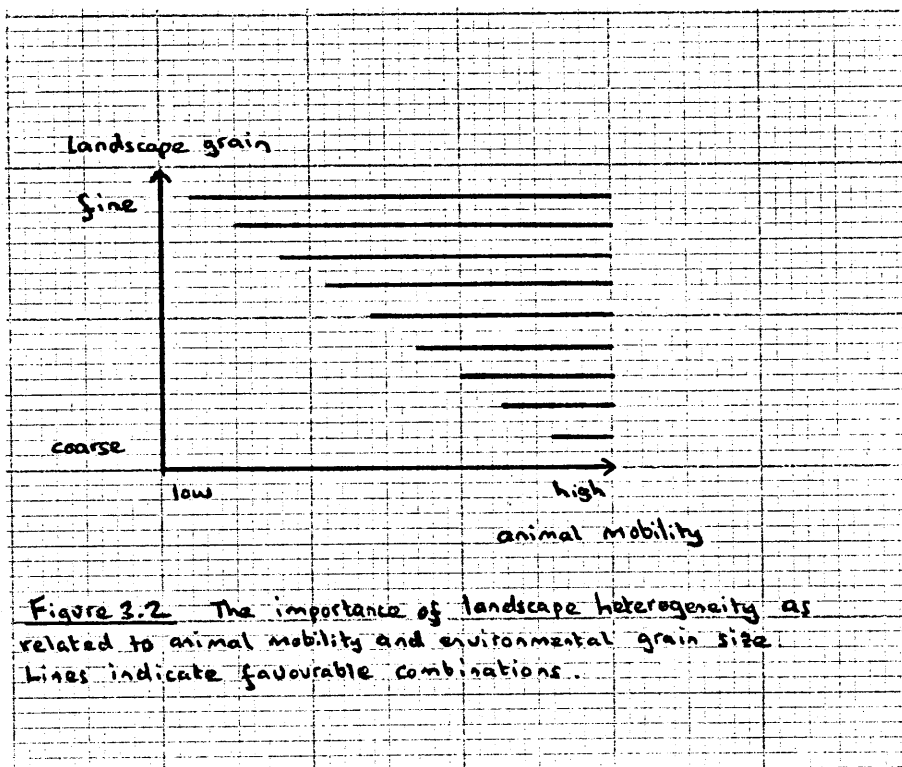 landscape grain
fine
coarse
low
high
animal mobility
Figure 3.2 The importance of landscape heterogeneity as
related to animal mobility and environmental grain size.
Lines indicate favourable combinations.